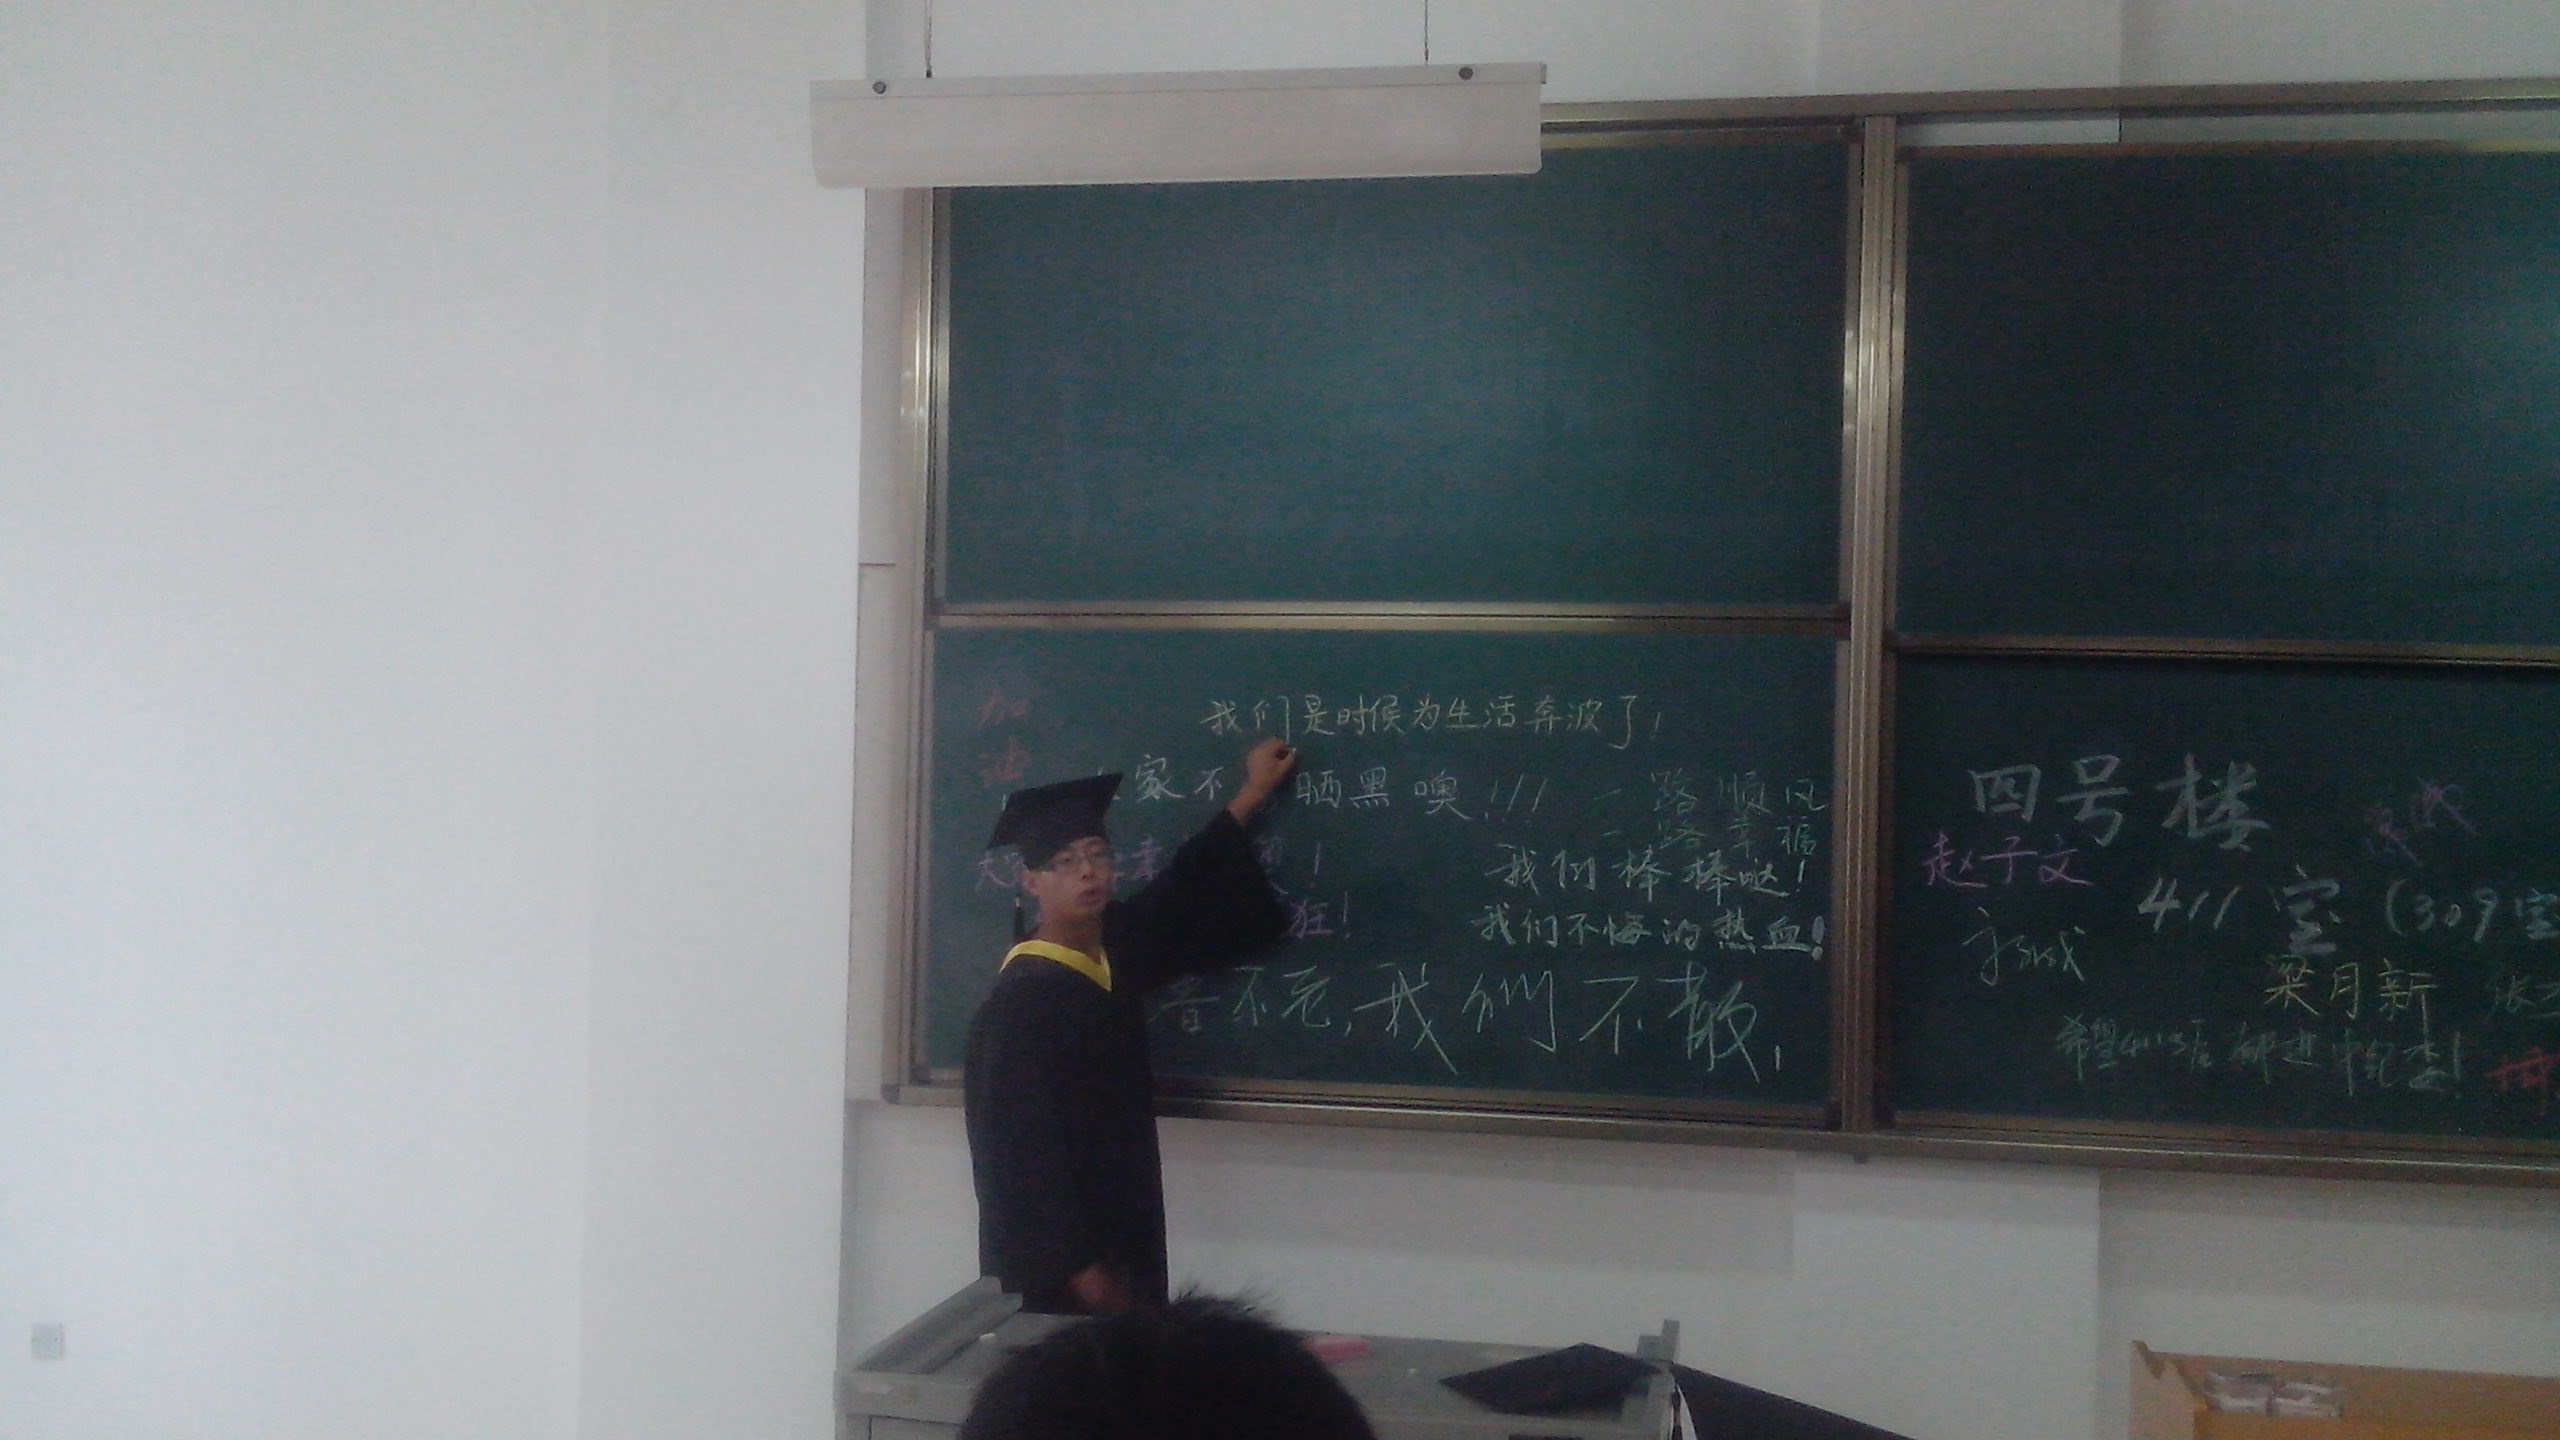 加
油
我们是时候为生活奔波了!
家不 晒黑噢!!!
一路顺风
一路幸福
我们棒棒哒!
狂!
我们不悔的热血!
不死,我们不散!
四号楼
赵子文
411室(309室
梁月新
希望411以后都进中纪委!